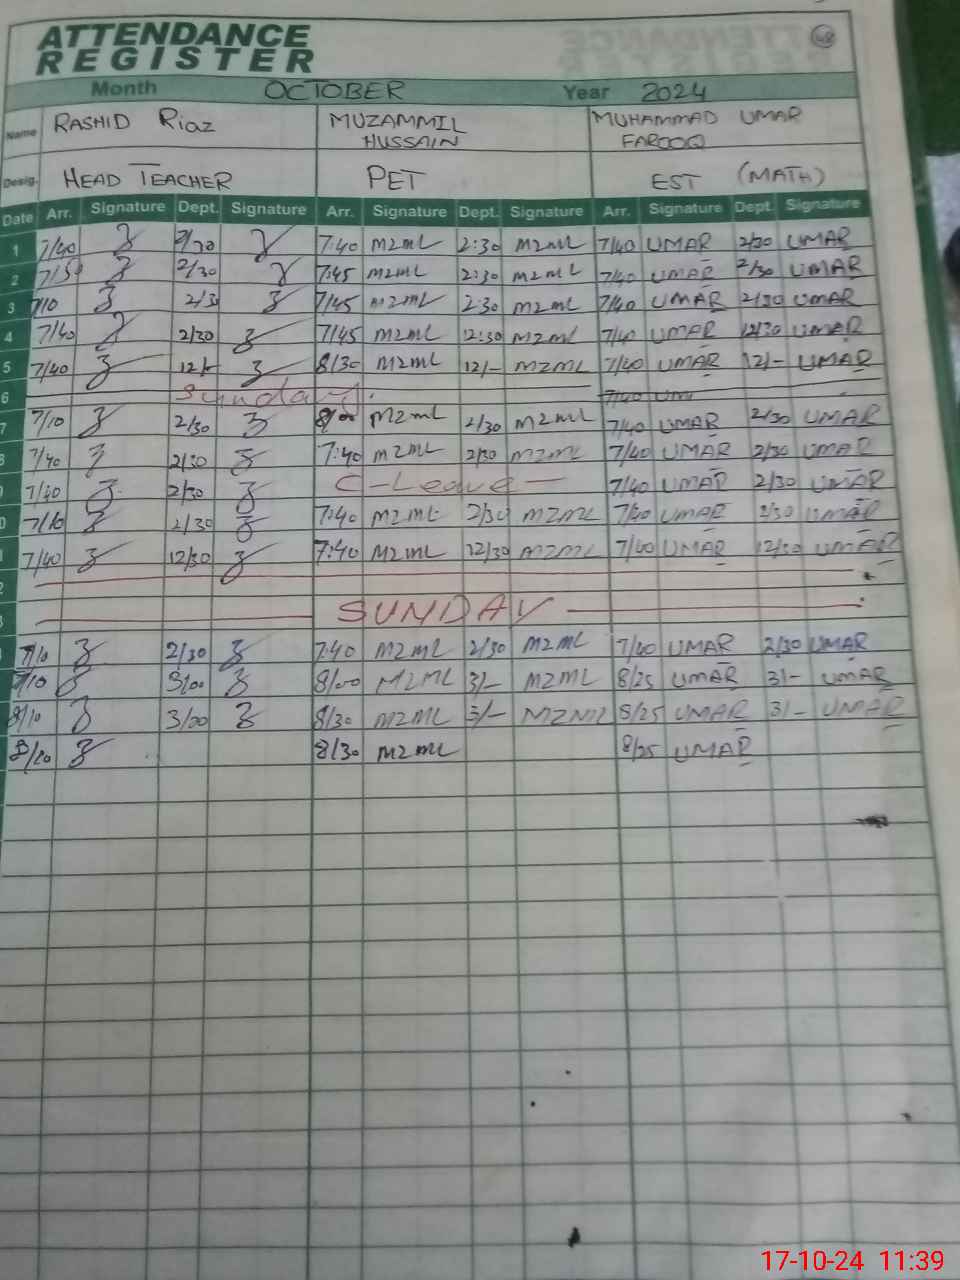 ATTENDANCE
REGISTER
48
Month OCTOBER Year 2024
Name RASHID Riaz MUZAMMIL HUSSAIN MUHAMMAD UMAR FAROOQ
Desig. HEAD TEACHER PET EST (MATH)
Date Arr. Signature Dept. Signature Arr. Signature Dept. Signature Arr. Signature Dept. Signature
1 7/40 2/30 7:40 MZML 2:30 MZML 7/40 UMAR 2/30 UMAR
2 7/50 2/30 7:45 MZML 2:30 MZML 7/40 UMAR 2/30 UMAR
3 7/10 2/30 7/45 MZML 2:30 MZML 7/40 UMAR 2/30 UMAR
4 7/40 2/30 7/45 MZML 12:30 MZML 7/40 UMAR 12/30 UMAR
5 7/40 12/- 8/30 MZML 12/- MZML 7/40 UMAR 12/- UMAR
6 Sunday 7/40 UM
7 7/10 2/30 8/00 MZML 2/30 MZML 7/40 UMAR 2/30 UMAR
7/40 2/30 7:40 MZML 2/30 MZML 7/40 UMAR 2/30 UMAR
7/40 2/30 C-Leave 7/40 UMAR 2/30 UMAR
7/10 2/30 7:40 MZML 2/30 MZML 7/40 UMAR 2/30 UMAR
7/40 12/30 7:40 MZML 12/30 MZML 7/40 UMAR 12/30 UMAR
SUNDAY
7/10 2/30 7:40 MZML 2/30 MZML 7/40 UMAR 2/30 UMAR
3/00 8/00 MZML 3/- MZML 8/25 UMAR 3/- UMAR
8/10 3/00 8/30 MZML 3/- MZML 8/25 UMAR 3/- UMAR
8/20 8/30 MZML 8/25 UMAR
17-10-24 11:39